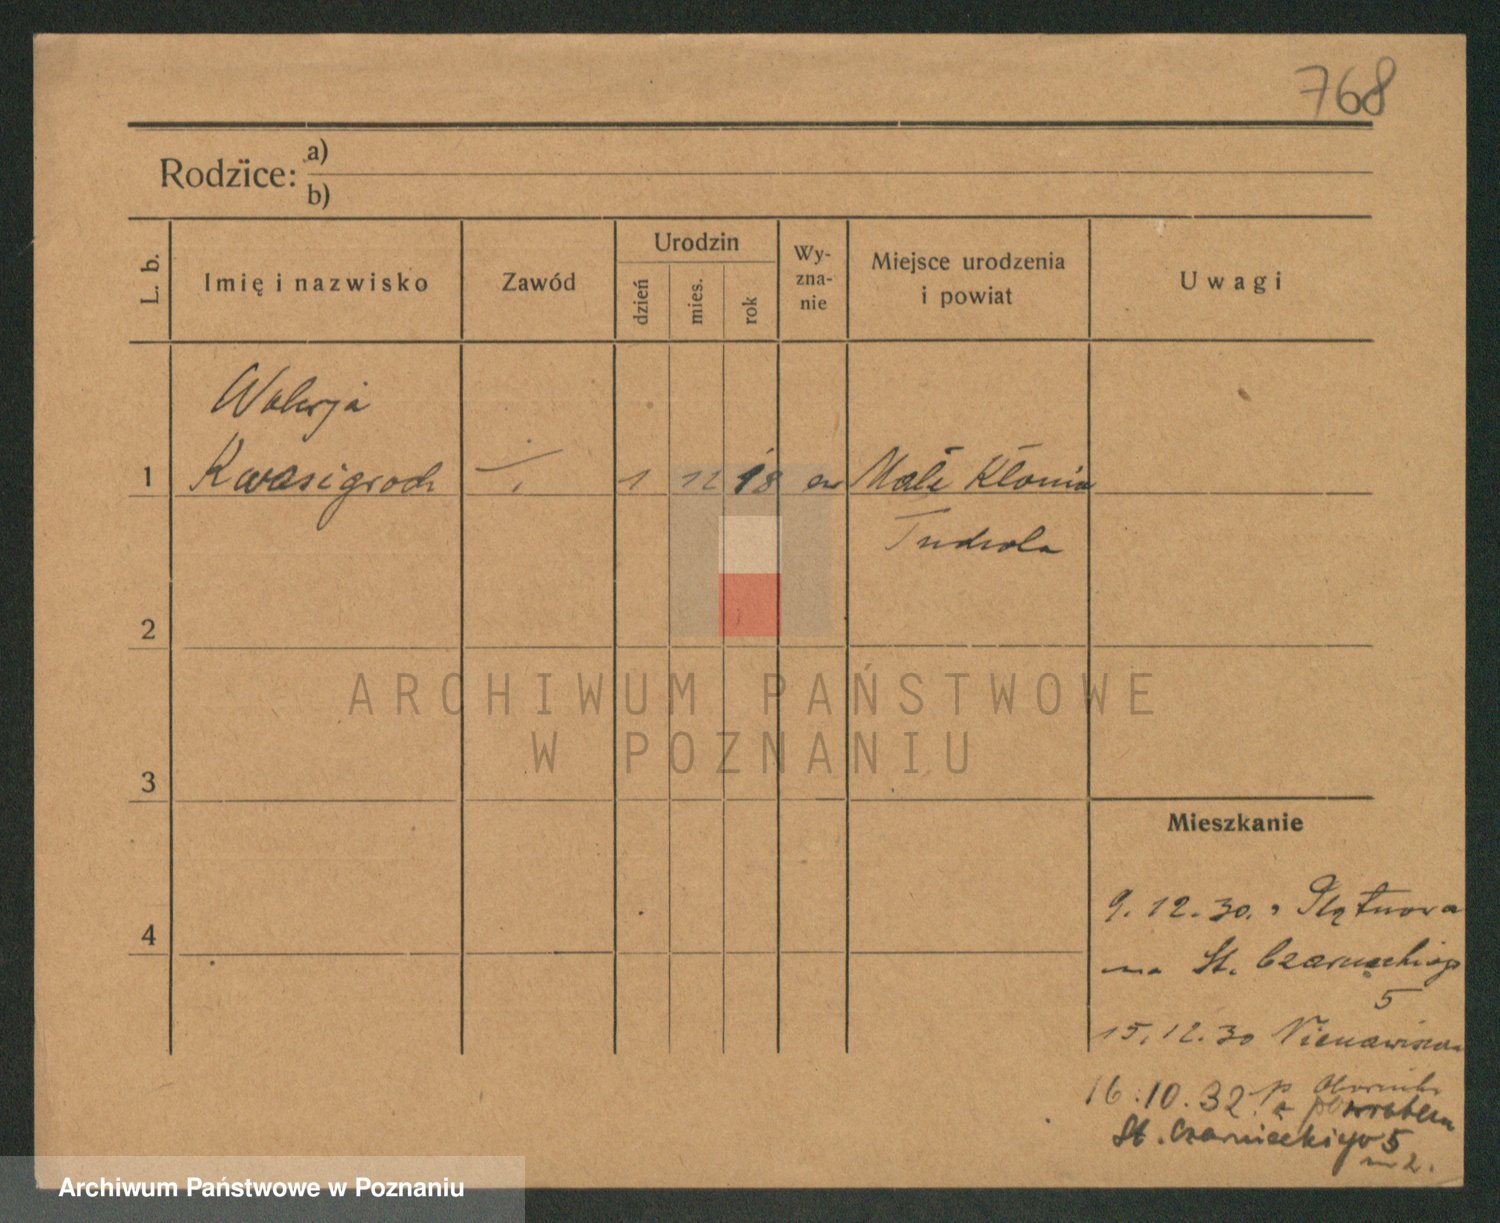 768
Rodzice: a)
b)
L. b.
Imię i nazwisko
Zawód
Urodzin
dzień
mies.
rok
Wy-
zna-
nie
Miejsce urodzenia
i powiat
Uwagi
Walerja
1 Kwasigroch 1 12 18 ew Małe Kłonia
Tuchola
2
ARCHIWUM PAŃSTWOWE
W POZNANIU
3
Mieszkanie
4
9.12.30.
na St. Czarnieckiego
5
15.12.30
16.10.32 p Oborniki
z powrotem
St. Czarnieckiego 5
m 2.
Archiwum Państwowe w Poznaniu